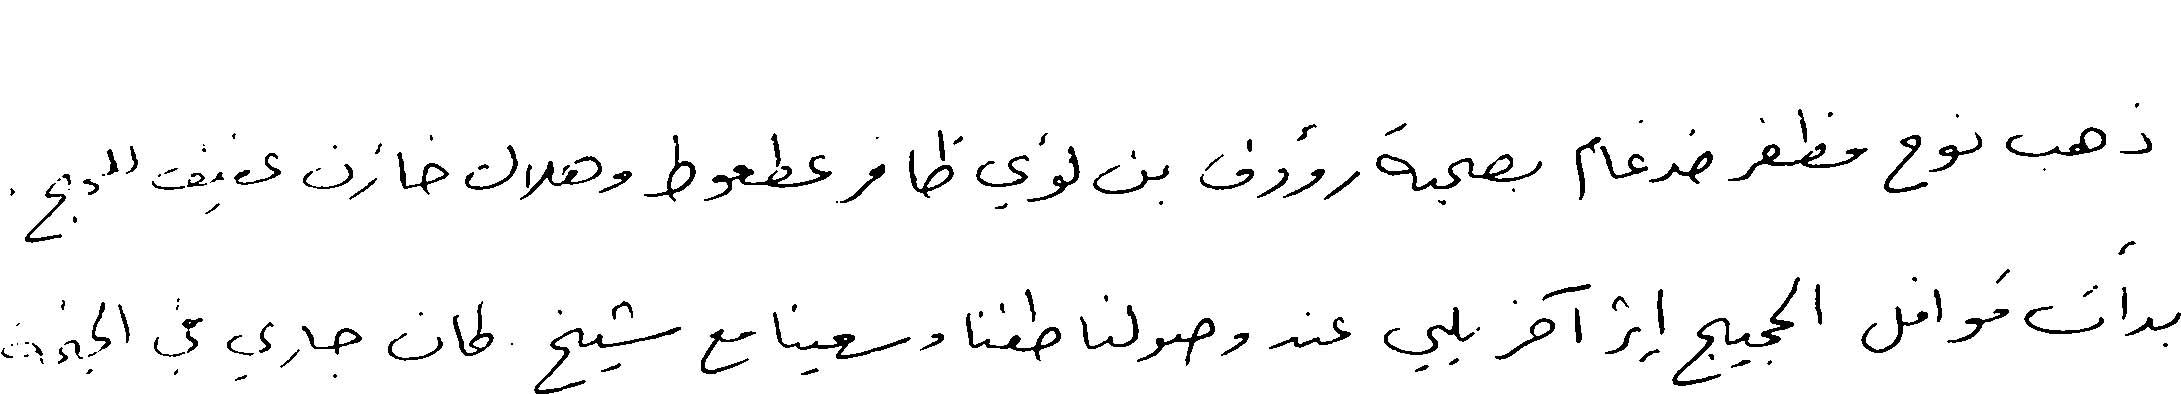 ذهب نوح مظفر ضرغام بصحبة رؤوف بن لؤي ظافر عطعوط وهلال خازن عفيف للحج .
بدأت قوافل الحجيج إثر آخر يلبي عند وصولنا طفنا وسعينا مع شيخ . كان جاري في الخيمة